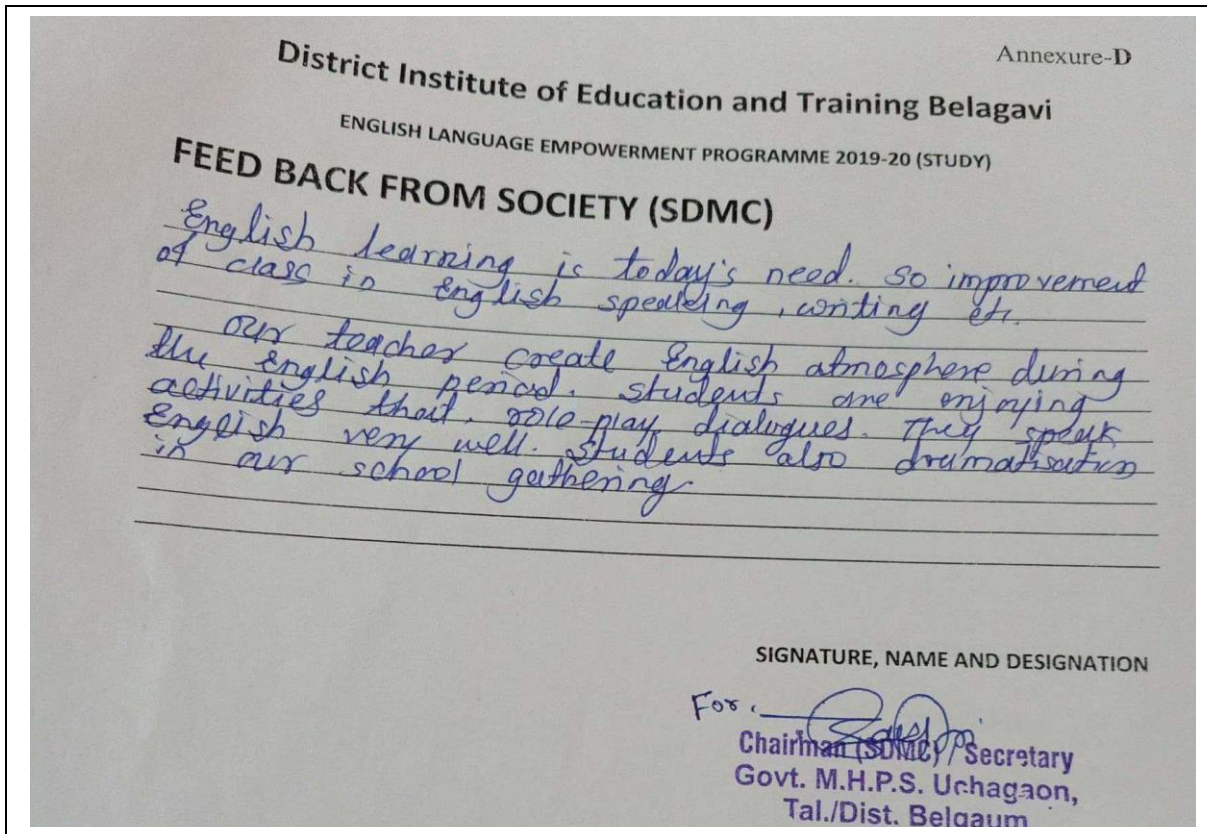 Annexure-D
District Institute of Education and Training Belagavi
ENGLISH LANGUAGE EMPOWERMENT PROGRAMME 2019-20 (STUDY)
FEED BACK FROM SOCIETY (SDMC)
English learning is today's need. So improvement
of class in English speaking, writing etc.
Our teacher create English atmosphere during
the English period. Students are enjoying
activities that, role-play, dialogues. They speak
English very well. Students also dramatisation
in our school gathering.
SIGNATURE, NAME AND DESIGNATION
For.
Chairman (SDMC) / Secretary
Govt. M.H.P.S. Uchagaon,
Tal./Dist. Belgaum